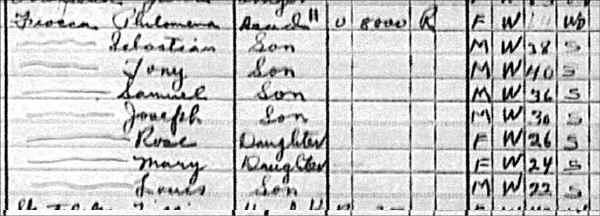 Philomena Head H O 8000 R F W Wd
Sebastian Son M W 38 S
Tony Son M W 40 S
Samuel Son M W 36 S
Joseph Son M W 30 S
Rose Daughter F W 26 S
Mary Daughter F W 24 S
Louis Son M W 22 S